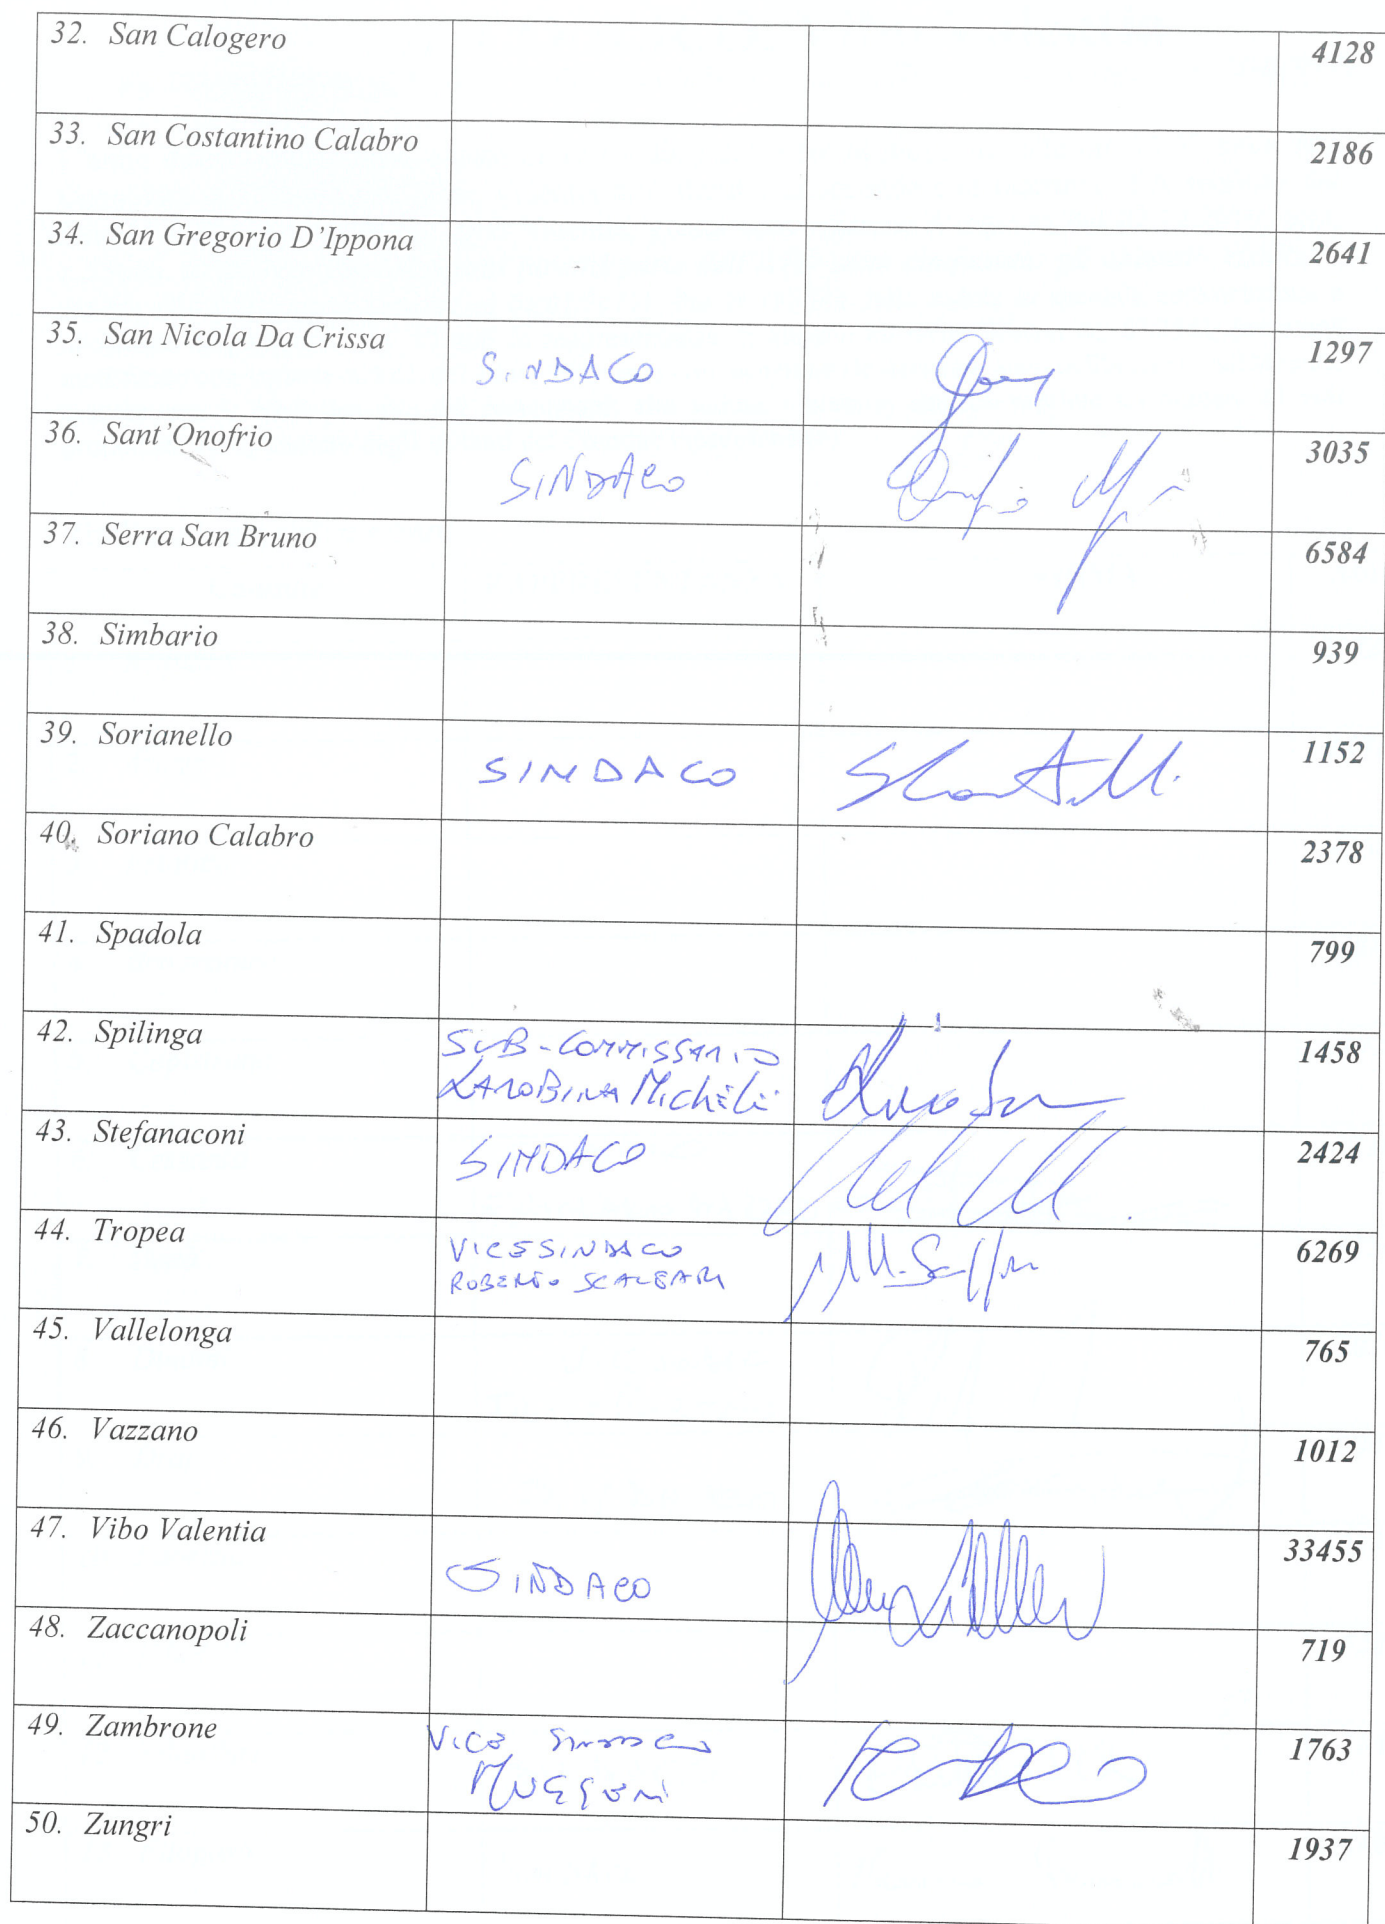 32. San Calogero 4128
33. San Costantino Calabro 2186
34. San Gregorio D'Ippona 2641
35. San Nicola Da Crissa SINDACO 1297
36. Sant'Onofrio SINDACO 3035
37. Serra San Bruno 6584
38. Simbario 939
39. Sorianello SINDACO 1152
40. Soriano Calabro 2378
41. Spadola 799
42. Spilinga SUB-COMMISSARIO 1458
Michele
43. Stefanaconi SINDACO 2424
44. Tropea VICESINDACO 6269
ROBERTO
45. Vallelonga 765
46. Vazzano 1012
47. Vibo Valentia SINDACO 33455
48. Zaccanopoli 719
49. Zambrone VICE SINDACO 1763
50. Zungri 1937